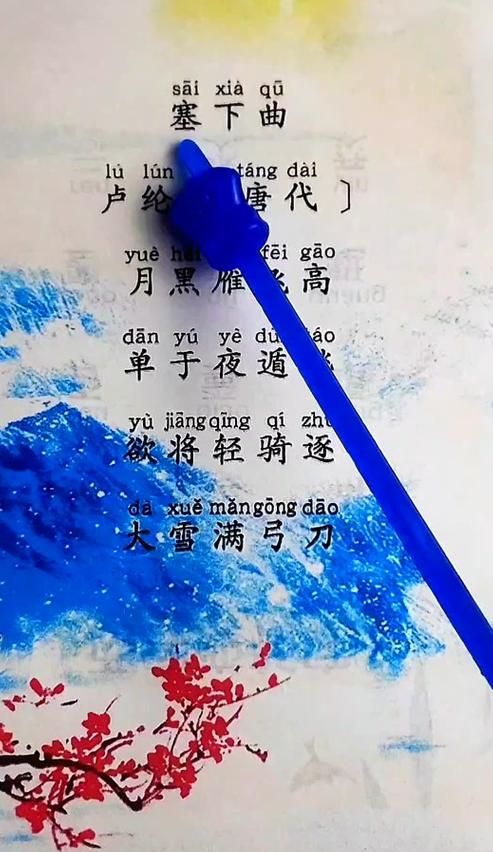 sāi xià qū
塞下曲
lú lún táng dài
卢纶 唐代〕
yuè hēi fēi gāo
月黑雁飞高
dān yú yè dùn táo
单于夜遁逃
yù jiāng qīng qí zhú
欲将轻骑逐
dà xuě mǎn gōng dāo
大雪满弓刀